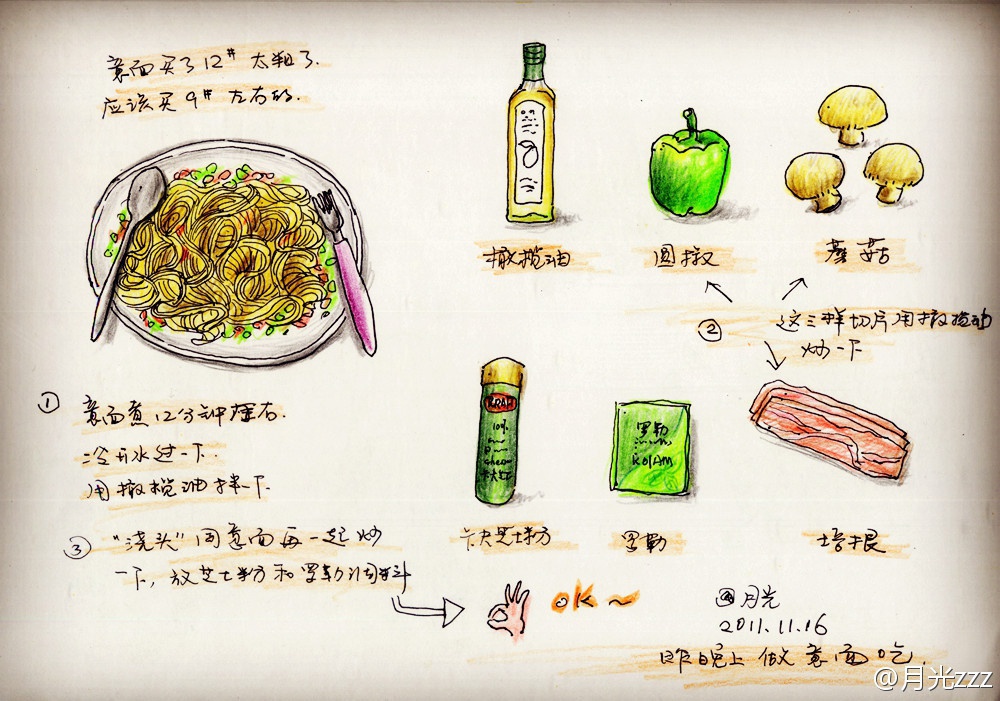 意面买了12# 太粗了.
应该买9#左右的.
橄榄油
圆椒
蘑菇
②
这三样切片用橄榄油
炒一下
①
意面煮12分钟左右.
冷开水过一下.
用橄榄油拌一下
KRAFT
100%
罗勒
卡夫芝士粉
罗勒
培根
③
"浇头"同意面再一起炒
一下,放芝士粉和罗勒调料
OK~
月光
2011.11.16
昨晚上做意面吃.
@月光zzz